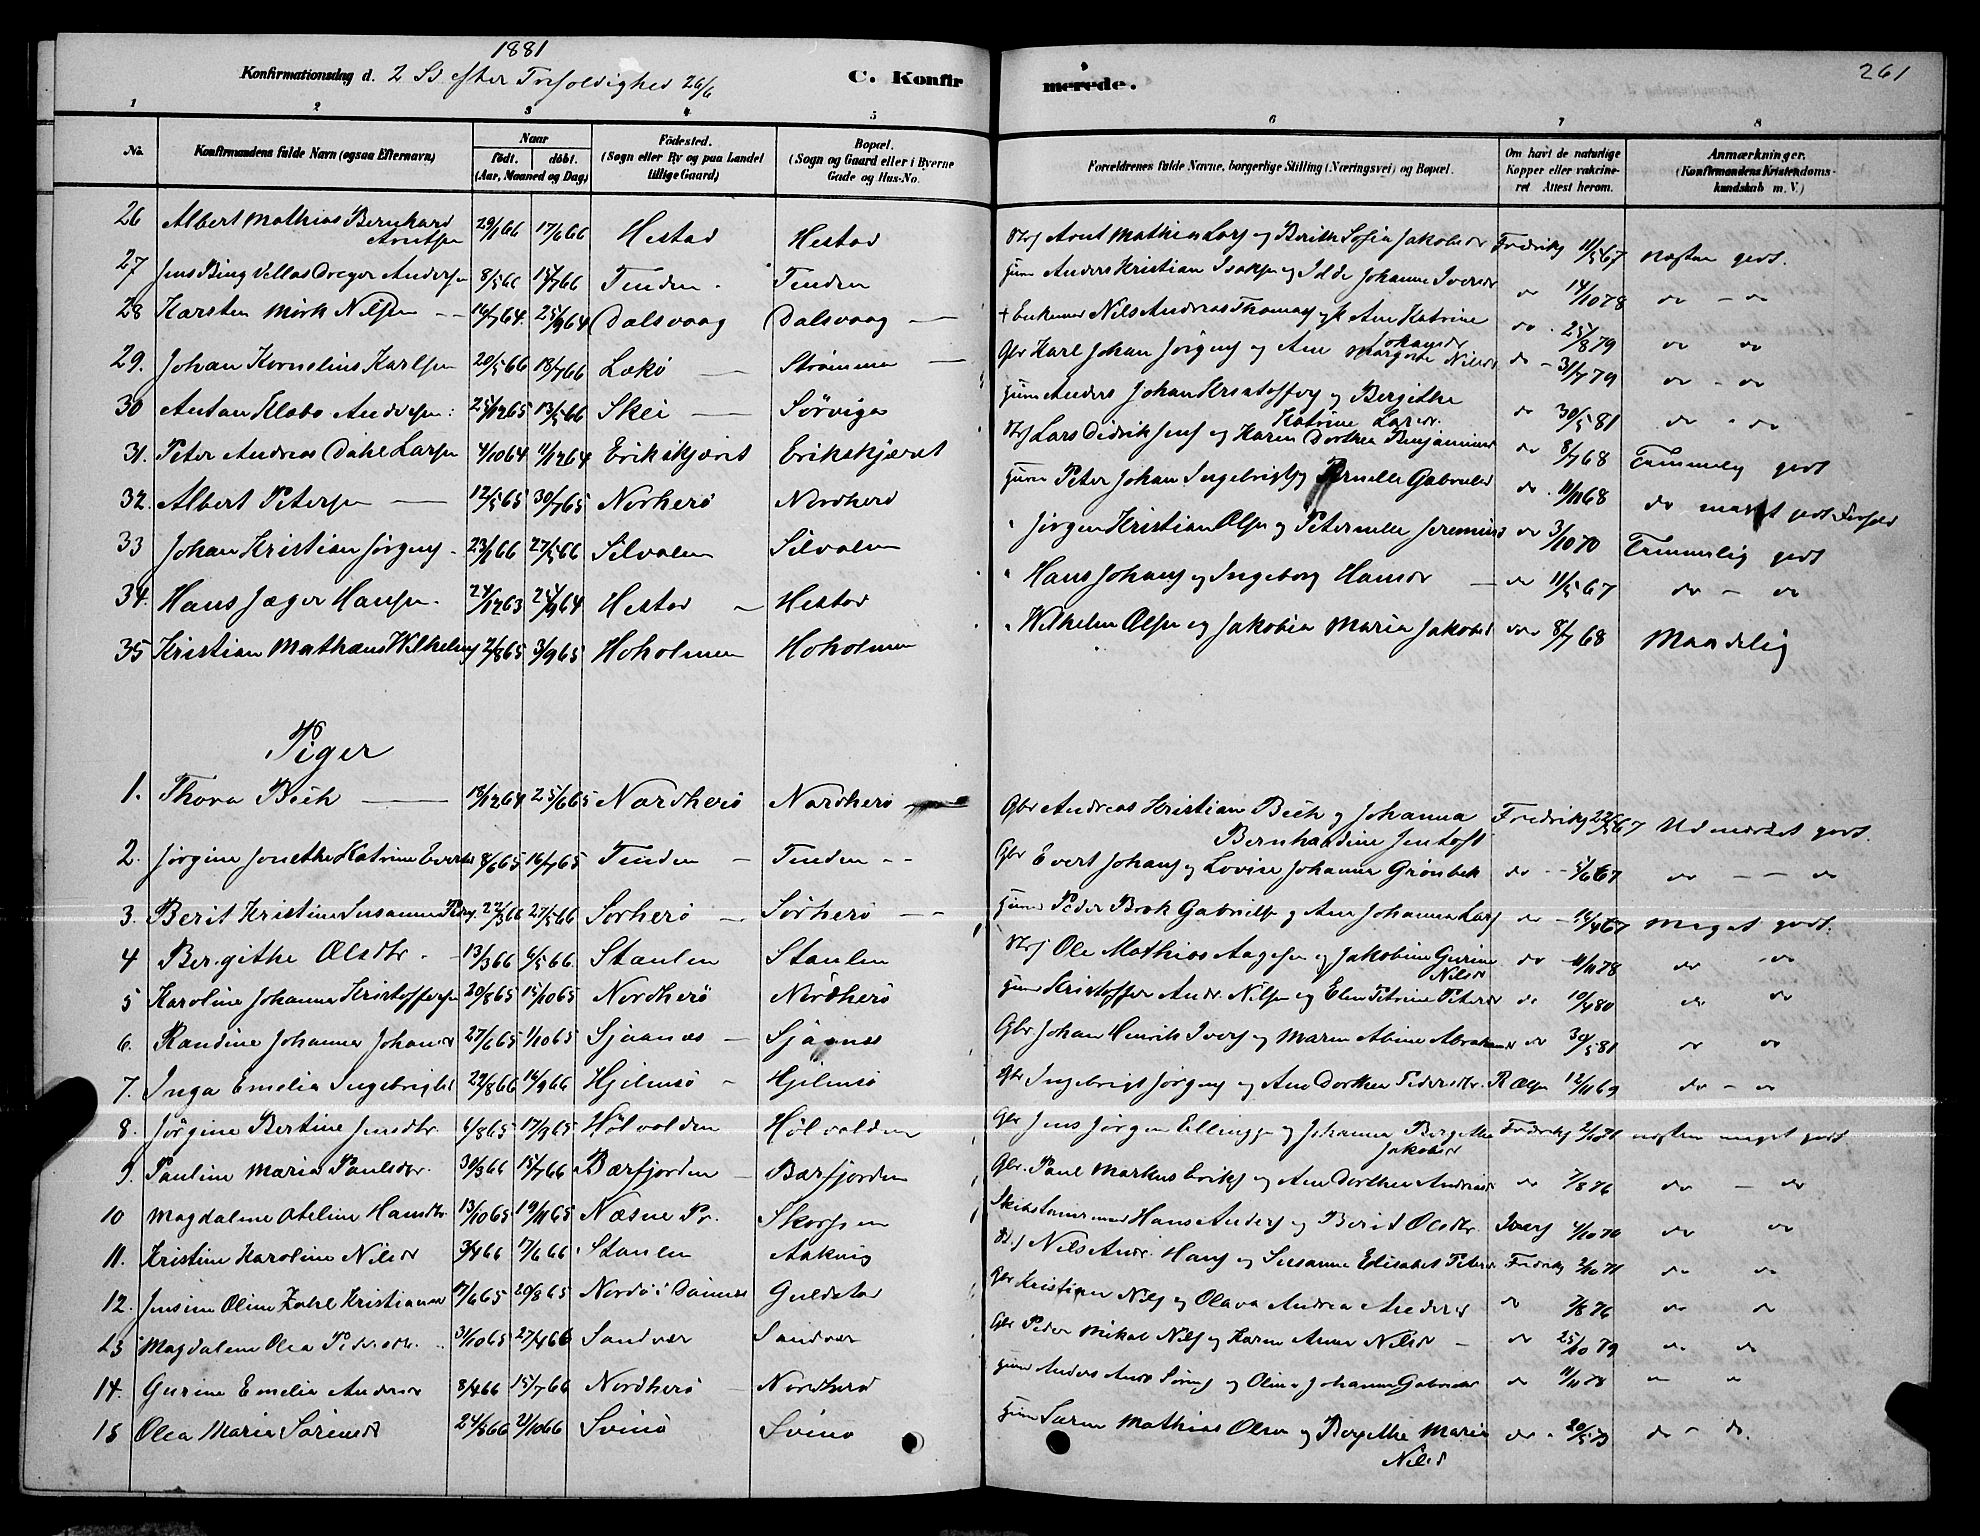 1881
Konfirmationsdag d. 2 S efter Trefoldighed 26/6
C. Konfir
merede.
261
1 2 3 4 5 6 7 8
No.
Konfirmandens fulde Navn (ogsaa Efternavn)
Naar
födt. döbt.
(Aar, Maaned og Dag)
Födested.
(Sogn eller By og paa Landet
tillige Gaard)
Bopæl.
(Sogn og Gaard eller i Byerne
Gade og Hus-No.
Forældrenes fulde Navne, borgerlige Stilling (Næringsvei) og Bopæl.
Om havt de naturlige
Kopper eller vakcine-
ret Attest herom.
Anmærkninger.
(Konfirmandens Kristendoms-
kundskab m. V.)
26 Albert Mathias Bernhard Arntsen 29/1 66 17/6 66 Hestad Hestad Arnt Mathias Lars og Berith Sofia Jakobsdr Fredriks 11/5 67 næsten godt.
27 Andersen 8/5 66 15/7 66 Tenden Tenden Anders Kristian Isaksen og Johanna Iversdr do 14/10 78 do - do
28 Karsten Mörk Nilsen 14/7 64 25/9 64 Dalsvaag Dalsvaag Nils Andreas Thomas Ane Katrine Johansdr do 25/8 79 do do
29. Johan Kornelius Karlsen 20/5 66 18/7 66 Lökö Strömmen Gbr Karl Johan Jörgens og Ane Margrete Nilsdr do 31/7 79 do - do
30 Antan Klæbo Andersen 25/12 65 13/5 66 Skei Sörvigen Anders Johan Kristoffers og Bergithe Katrine Larsdr do 30/5 81 do - do
31. Peter Andreas Dahl Larsen 4/10 64 11/12 64 Erikskjæret Erikskjæret Lars Didriksens og Karen Dorthea Benjaminsd do 8/7 68 Temmelig godt
32. Albert Petersen 12/5 65 30/7 65 Norherö Nordherö Peter Johan Ingebrigts og Pernelle Gabrielsd do 11/11 68 do
33 Johan Kristian Jörgens 23/1 66 27/5 66 Silvalen Silvalen Jörgen Kristian Olsen og Peternelle Jeremiasd do 3/10 70 Temmelig godt
34. Hans Jæger Hansen 24/12 63 24/9 64 Hestad Hestad Hans Johans og Ingeborg Hansdr do 11/5 67 do - do
35 Kristian Mathæus Wilhelms 2/8 65 3/9 65 Hoholmen Hoholmen Wilhelm Olsen og Jakobia Maria Jakobsd do 8/7 68 Maadelig
Piger
1. Thora Bech 18/12 64 25/6 65 Nordherö Nordherö Gbr Andreas Kristian Bech og Johanna Bernhardine Jentoft Fredriks Udmærket godt.
2. Jörgine Jonetha Katrine Evertsd 8/6 65 16/7 65 Tenden Tenden Gbr Evert Johans og Lovise Johanna Grönbek do 5/6 67 do - - do
3. Berit Kristine Susanne Peders 22/3 66 27/5 66 Sörherö Sörherö Peder Brok Gabrielsen og Ane Johanna Lars do 14/4 67 meget godt.
4 Bergithe Olsdtr 13/3 66 6/5 66 Staulen Staulen Ole Mathias Aagesen og Jakobine Gurine Nilsd do 11/11 78 do do
5 Karoline Johanna Kristoffersen 20/8 65 15/10 65 Nordherö Nordherö Kristoffer Andr. Nilsen og Elen Petrine Petersdr do 10/4 80 do do
6. Randine Johanna Johansd 27/6 65 1/10 65 Sjaanes Sjaanes Gbr. Johan Henrik Ivers og Maren Abine Abrahamsd do 30/5 81 do do
7. Inga Emelia Ingebrigtsd 29/8 66 16/9 66 Hjelmsö Hjelmsö Gbr Ingebrigt Jörgens og Ane Dorthea Pedersdtr. R Olsen 12/11 69 do - do
8. Jörgine Bertine Jensdtr 6/8 65 17/9 65 Hölvolden Hölvolden Gbr Jens Jörgen Ellingsen og Johanna Bergithe Jakobsdr Fredriks 2/10 71 næsten meget godt
9. Pauline Maria Paulsdtr. 30/3 66 15/7 66 Bærfjorden Bærfjorden Gbr. Paul Markus Eriks og Ane Dorthea Andreasdr do 7/8 76 do - do
10 Magdalene Oteline Hansdtr 13/10 65 19/11 65 Næsne Pr. Skorpen Hans Anders og Berit Olsdtr. Ivers 4/10 70 do do
11. Kristine Karoline Nilsdr 3/4 66 17/6 66 Staulen Aakvig Nils Andr. Hans og Susanne Elisabet Petersdr Fredriks 2/10 71 do do
12. Jensine Oline Zahl Kristiansd 17/6 65 20/8 65 Nordö i Dönnes Guldstad Gbr Kristian Nils og Olava Andrea Andersd do 7/8 76 do do
13 Magdalene Olea Pedersdtr. 31/10 65 27/4 66 Sandvær Sandvær Gbr Peder Mikal Nils og Karen Anna Nilsd do 25/10 79 do do
14. Gurine Emelia Andersd 8/4 66 15/7 66 Nordherö Nordherö Anders Andr Sörens og Oline Johanna Gabrielsdr do 11/11 78 do do
15 Olea Maria Sörensdr 24/3 66 21/10 66 Svinö Svinö Sören Mathias Olsen og Bergithe Maria Nilsd do 20/5 73 do - do.